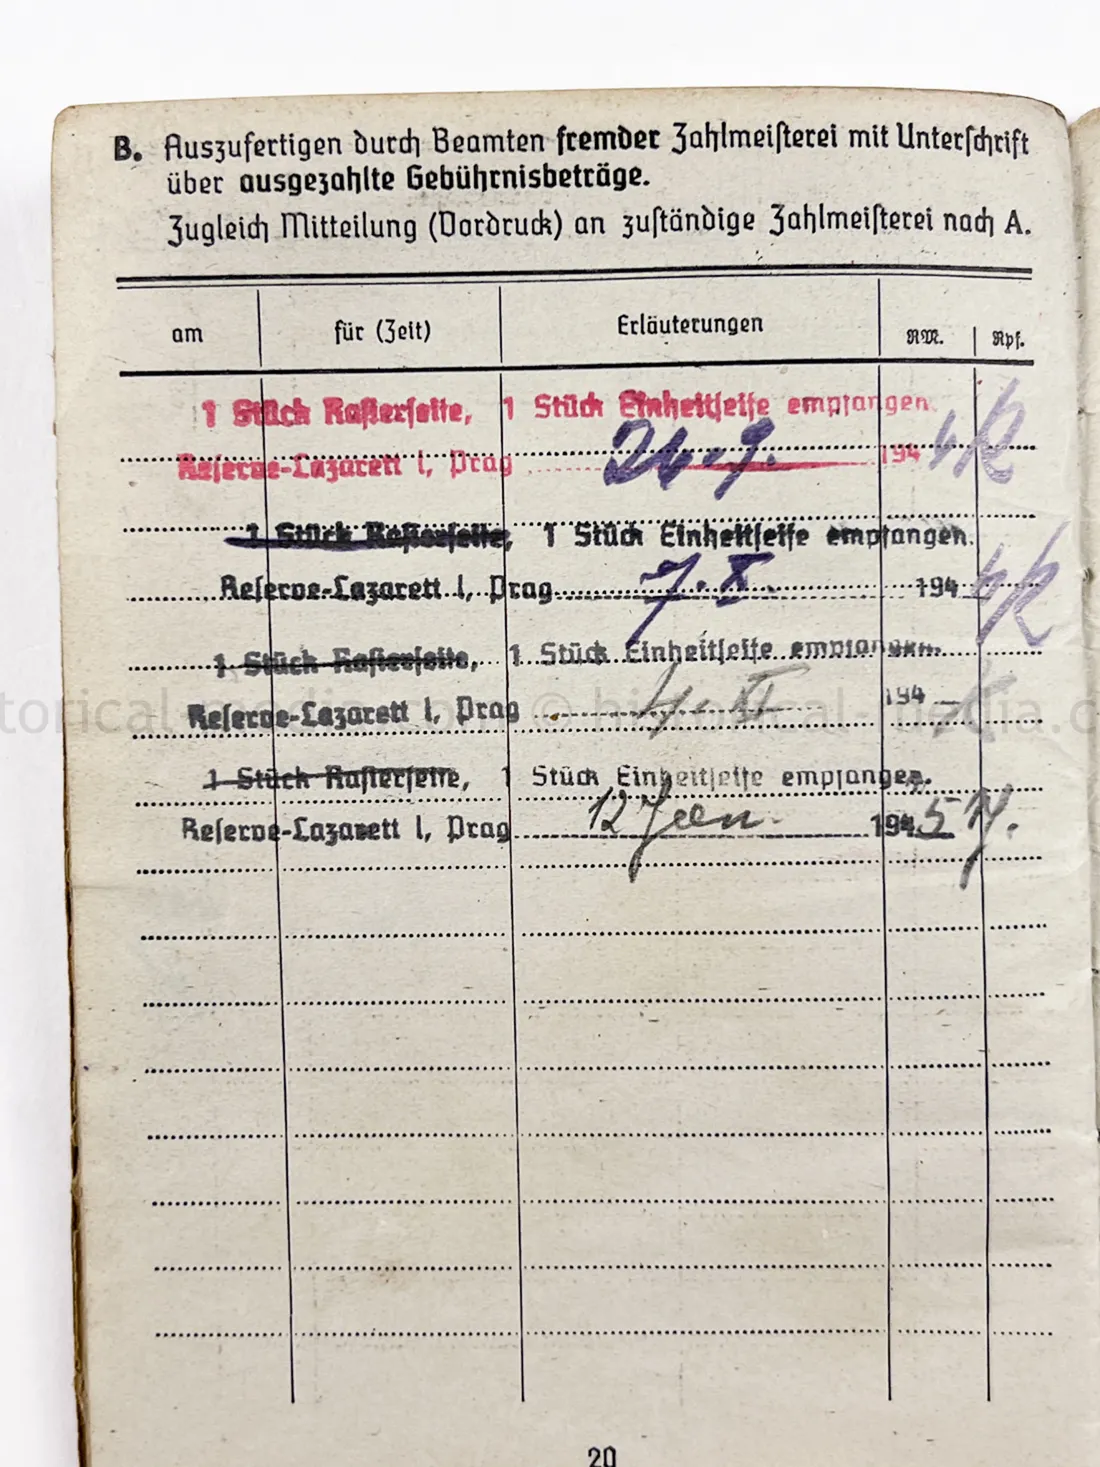 B. Auszufertigen durch Beamten fremder Zahlmeisterei mit Unterschrift
über ausgezahlte Gebührnisbeträge.
Zugleich Mitteilung (Vordruck) an zuständige Zahlmeisterei nach A.
am für (Zeit) Erläuterungen RM. Rpf.
1 Stück Rasierseife, 1 Stück Einheitseife empfangen.
Reserve-Lazarett I, Prag 24.9. 194
1 Stück Rasierseife, 1 Stück Einheitseife empfangen.
Reserve-Lazarett I, Prag 7.X. 194
1 Stück Rasierseife, 1 Stück Einheitseife empfangen.
Reserve-Lazarett I, Prag 4.XI 194
torical-media.c © historical-media.c
1 Stück Rasierseife, 1 Stück Einheitseife empfangen.
Reserve-Lazarett I, Prag 12 Jan. 1945
20